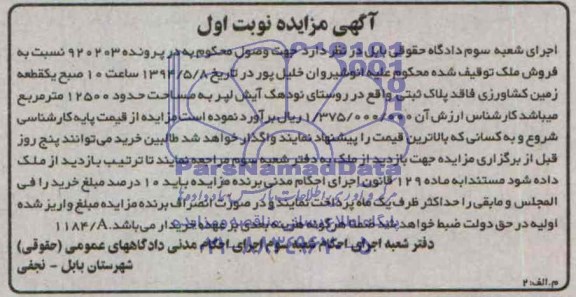 آگهی مزایده نوبت اول
اجرای شعبه سوم دادگاه حقوقی بابل در نظر دارد جهت وصول محکوم به در پرونده ۹۲۰۲۰۳ نسبت به
فروش ملک توقیف شده محکوم علیه انوشیروان خلیل پور در تاریخ ۱۳۹۴/۵/۸ ساعت ۱۰ صبح یکقطعه
زمین کشاورزی فاقد پلاک ثبتی واقع در روستای نودهک آیش لپر به مساحت حدود ۱۲۵۰۰ مترمربع
میباشد کارشناس ارزش آن ۱/۳۷۵/۰۰۰/۰۰۰ ریال برآورد نموده است مزایده از قیمت پایه کارشناسی
شروع و به کسانی که بالاترین قیمت را پیشنهاد نمایند واگذار خواهد شد طالبین خرید می توانند پنج روز
قبل از برگزاری مزایده جهت بازدید از ملک به دفتر شعبه سوم مراجعه نمایند تا ترتیب بازدید از ملک
داده شود مستندا به ماده ۱۲۹ قانون اجرای احکام مدنی برنده مزایده باید ۱۰ درصد مبلغ خرید را فی
المجلس و مابقی را حداکثر ظرف یک ماه پرداخت نمایند و در صورت انصراف برنده مزایده مبلغ واریز شده
اولیه در حق دولت ضبط خواهد شد ضمنا هر گونه هزینه بعدی بر عهده خریدار می باشد. ۱۱۸۴/A
دفتر شعبه اجرای احکام شعبه سوم اجرای احکام مدنی دادگاههای عمومی (حقوقی)
شهرستان بابل - نجفی
م.الف: ۲
ParsNamadData